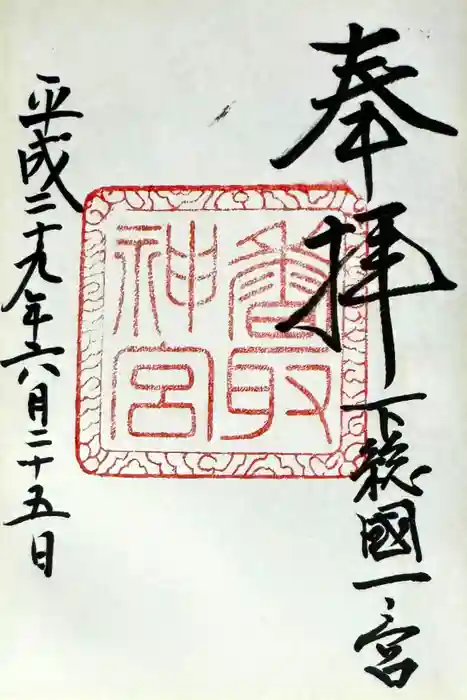 奉拝
下総國一宮
香取
神宮
平成二十九年六月二十五日